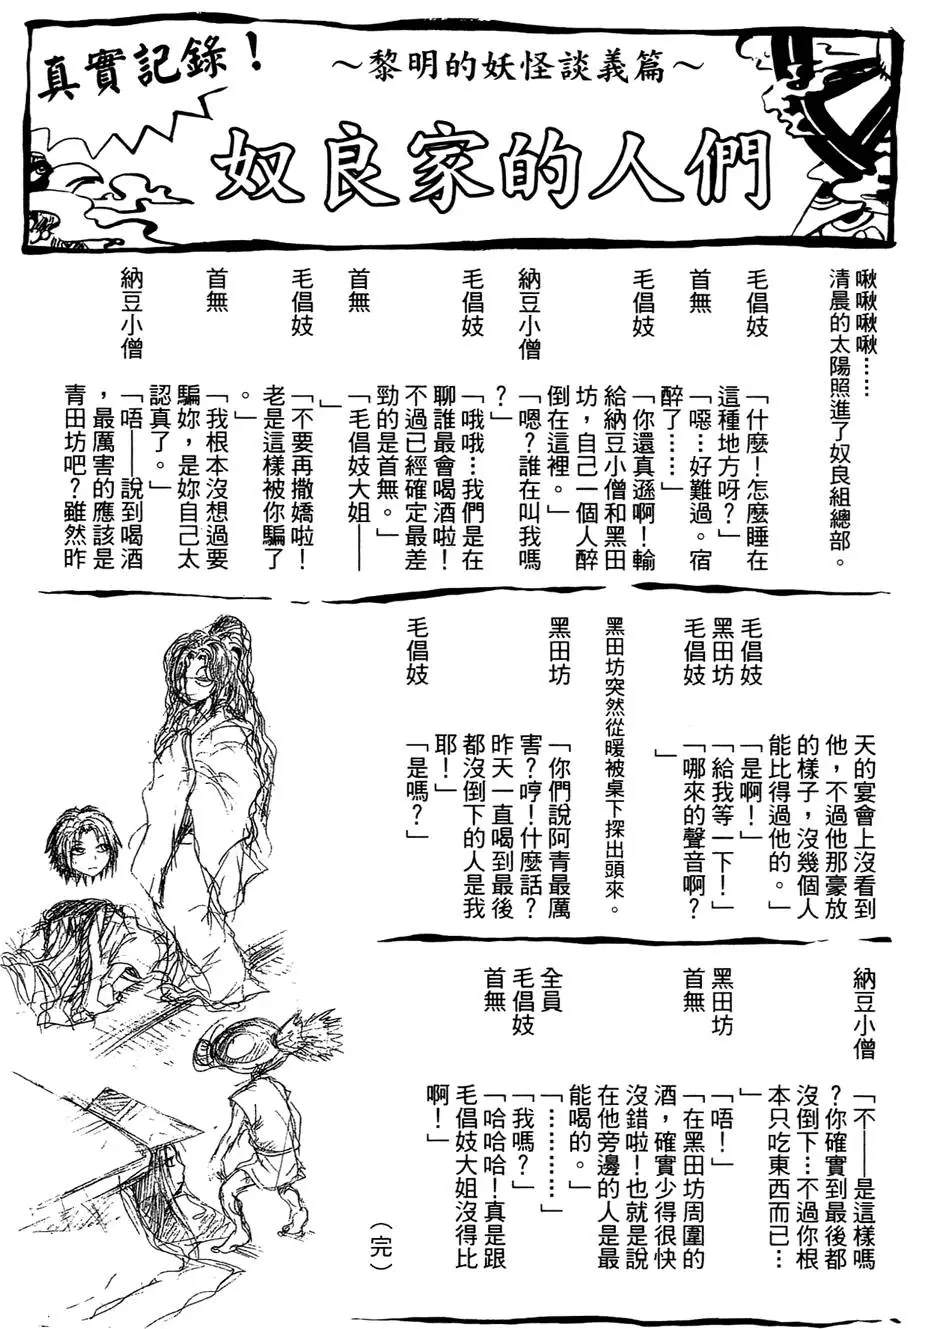 真實記錄！
～黎明的妖怪談義篇～
奴良家的人們
啾啾啾啾……
清晨的太陽照進了奴良組總部。
毛倡妓
「什麼！怎麼睡在
這種地方呀？」
首無
「噁…好難過。宿
醉了……」
毛倡妓
「你還真遜啊！輸
給納豆小僧和黑田
坊，自己一個人醉
倒在這裡。」
納豆小僧
「嗯？誰在叫我嗎
？」
毛倡妓
「哦哦…我們是在
聊誰最會喝酒啦！
不過已經確定最差
勁的是首無。」
首無
「毛倡妓大姐——
」
毛倡妓
「不要再撒嬌啦！
老是這樣被你騙了
。」
首無
「我根本沒想過要
騙妳，是妳自己太
認真了。」
納豆小僧
「唔——說到喝酒
，最厲害的應該是
青田坊吧？雖然昨
天的宴會上沒看到
他，不過他那豪放
的樣子，沒幾個人
能比得過他的。」
毛倡妓
「是啊！」
黑田坊
「給我等一下！」
毛倡妓
「哪來的聲音啊？
」
黑田坊突然從暖被桌下探出頭來。
黑田坊
「你們說阿青最厲
害？哼！什麼話？
昨天一直喝到最後
都沒倒下的人是我
耶！」
毛倡妓
「是嗎？」
納豆小僧
「不——是這樣嗎
？你確實到最後都
沒倒下…不過你根
本只吃東西而已…
」
黑田坊
「唔！」
首無
「在黑田坊周圍的
酒，確實少得很快
沒錯啦！也就是說
在他旁邊的人是最
能喝的。」
全員
「…………」
毛倡妓
「我嗎？」
首無
「哈哈哈！真是跟
毛倡妓大姐沒得比
啊！」
（完）